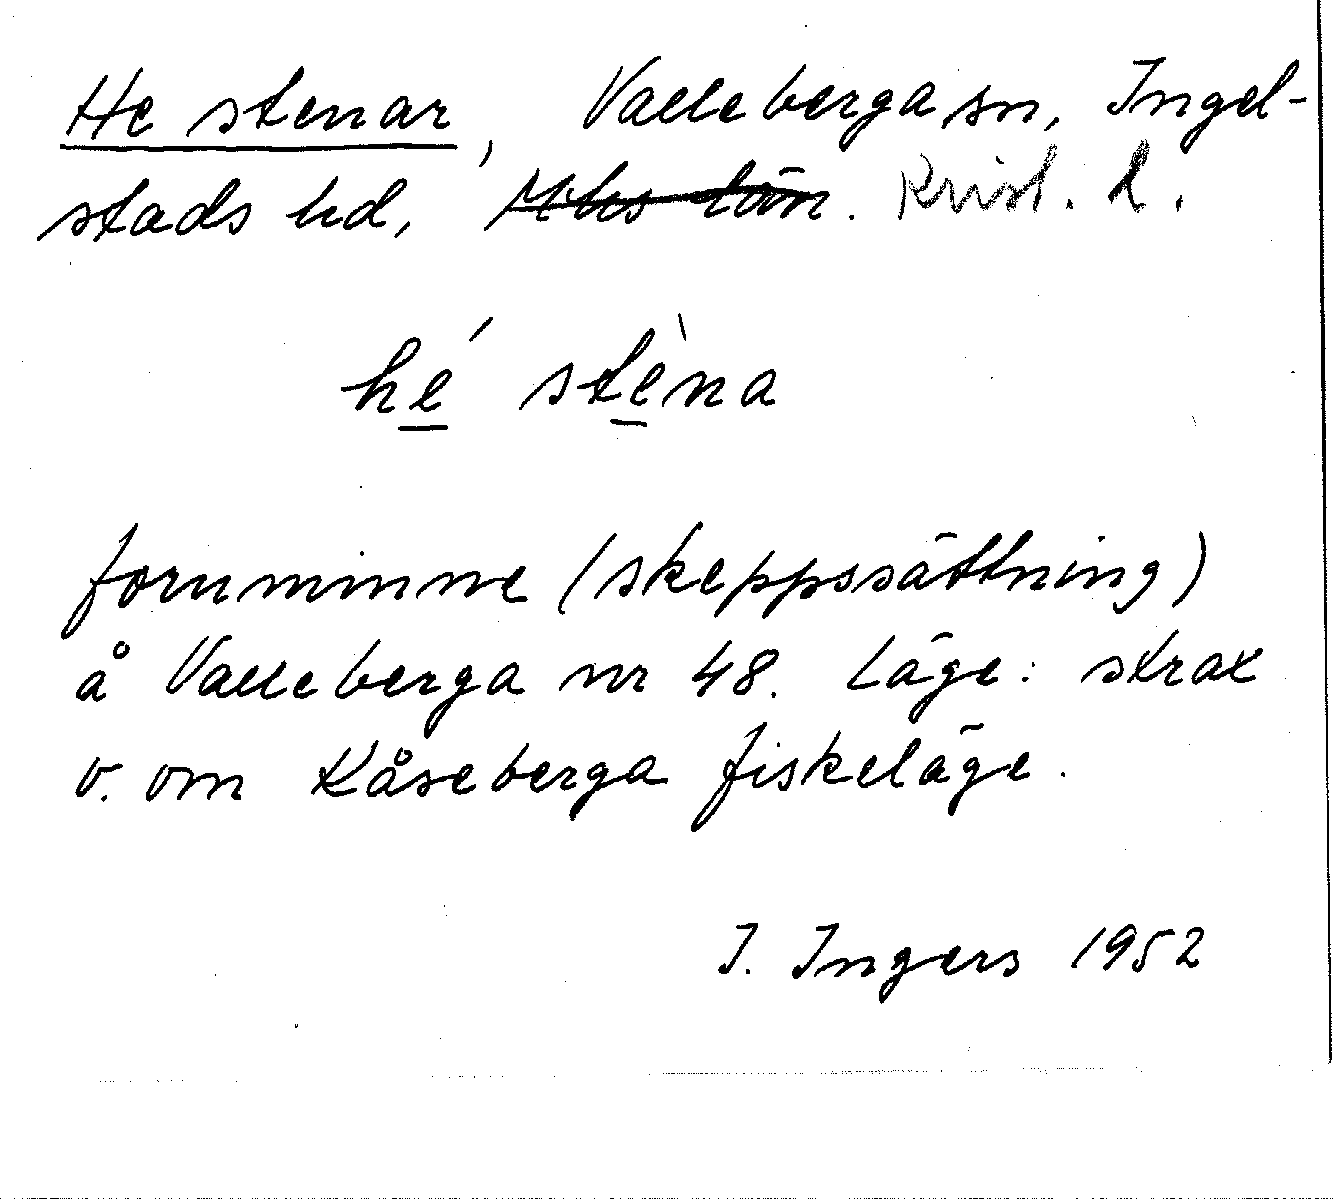 He stenar, Valleberga sn, Ingel-
stads hd, Mhs län. Krist. l.
hé stèna
fornminne (skeppssättning)
å Valleberga nr 48. Läge: strax
v. om Kåseberga fiskeläge.
I. Ingers 1952